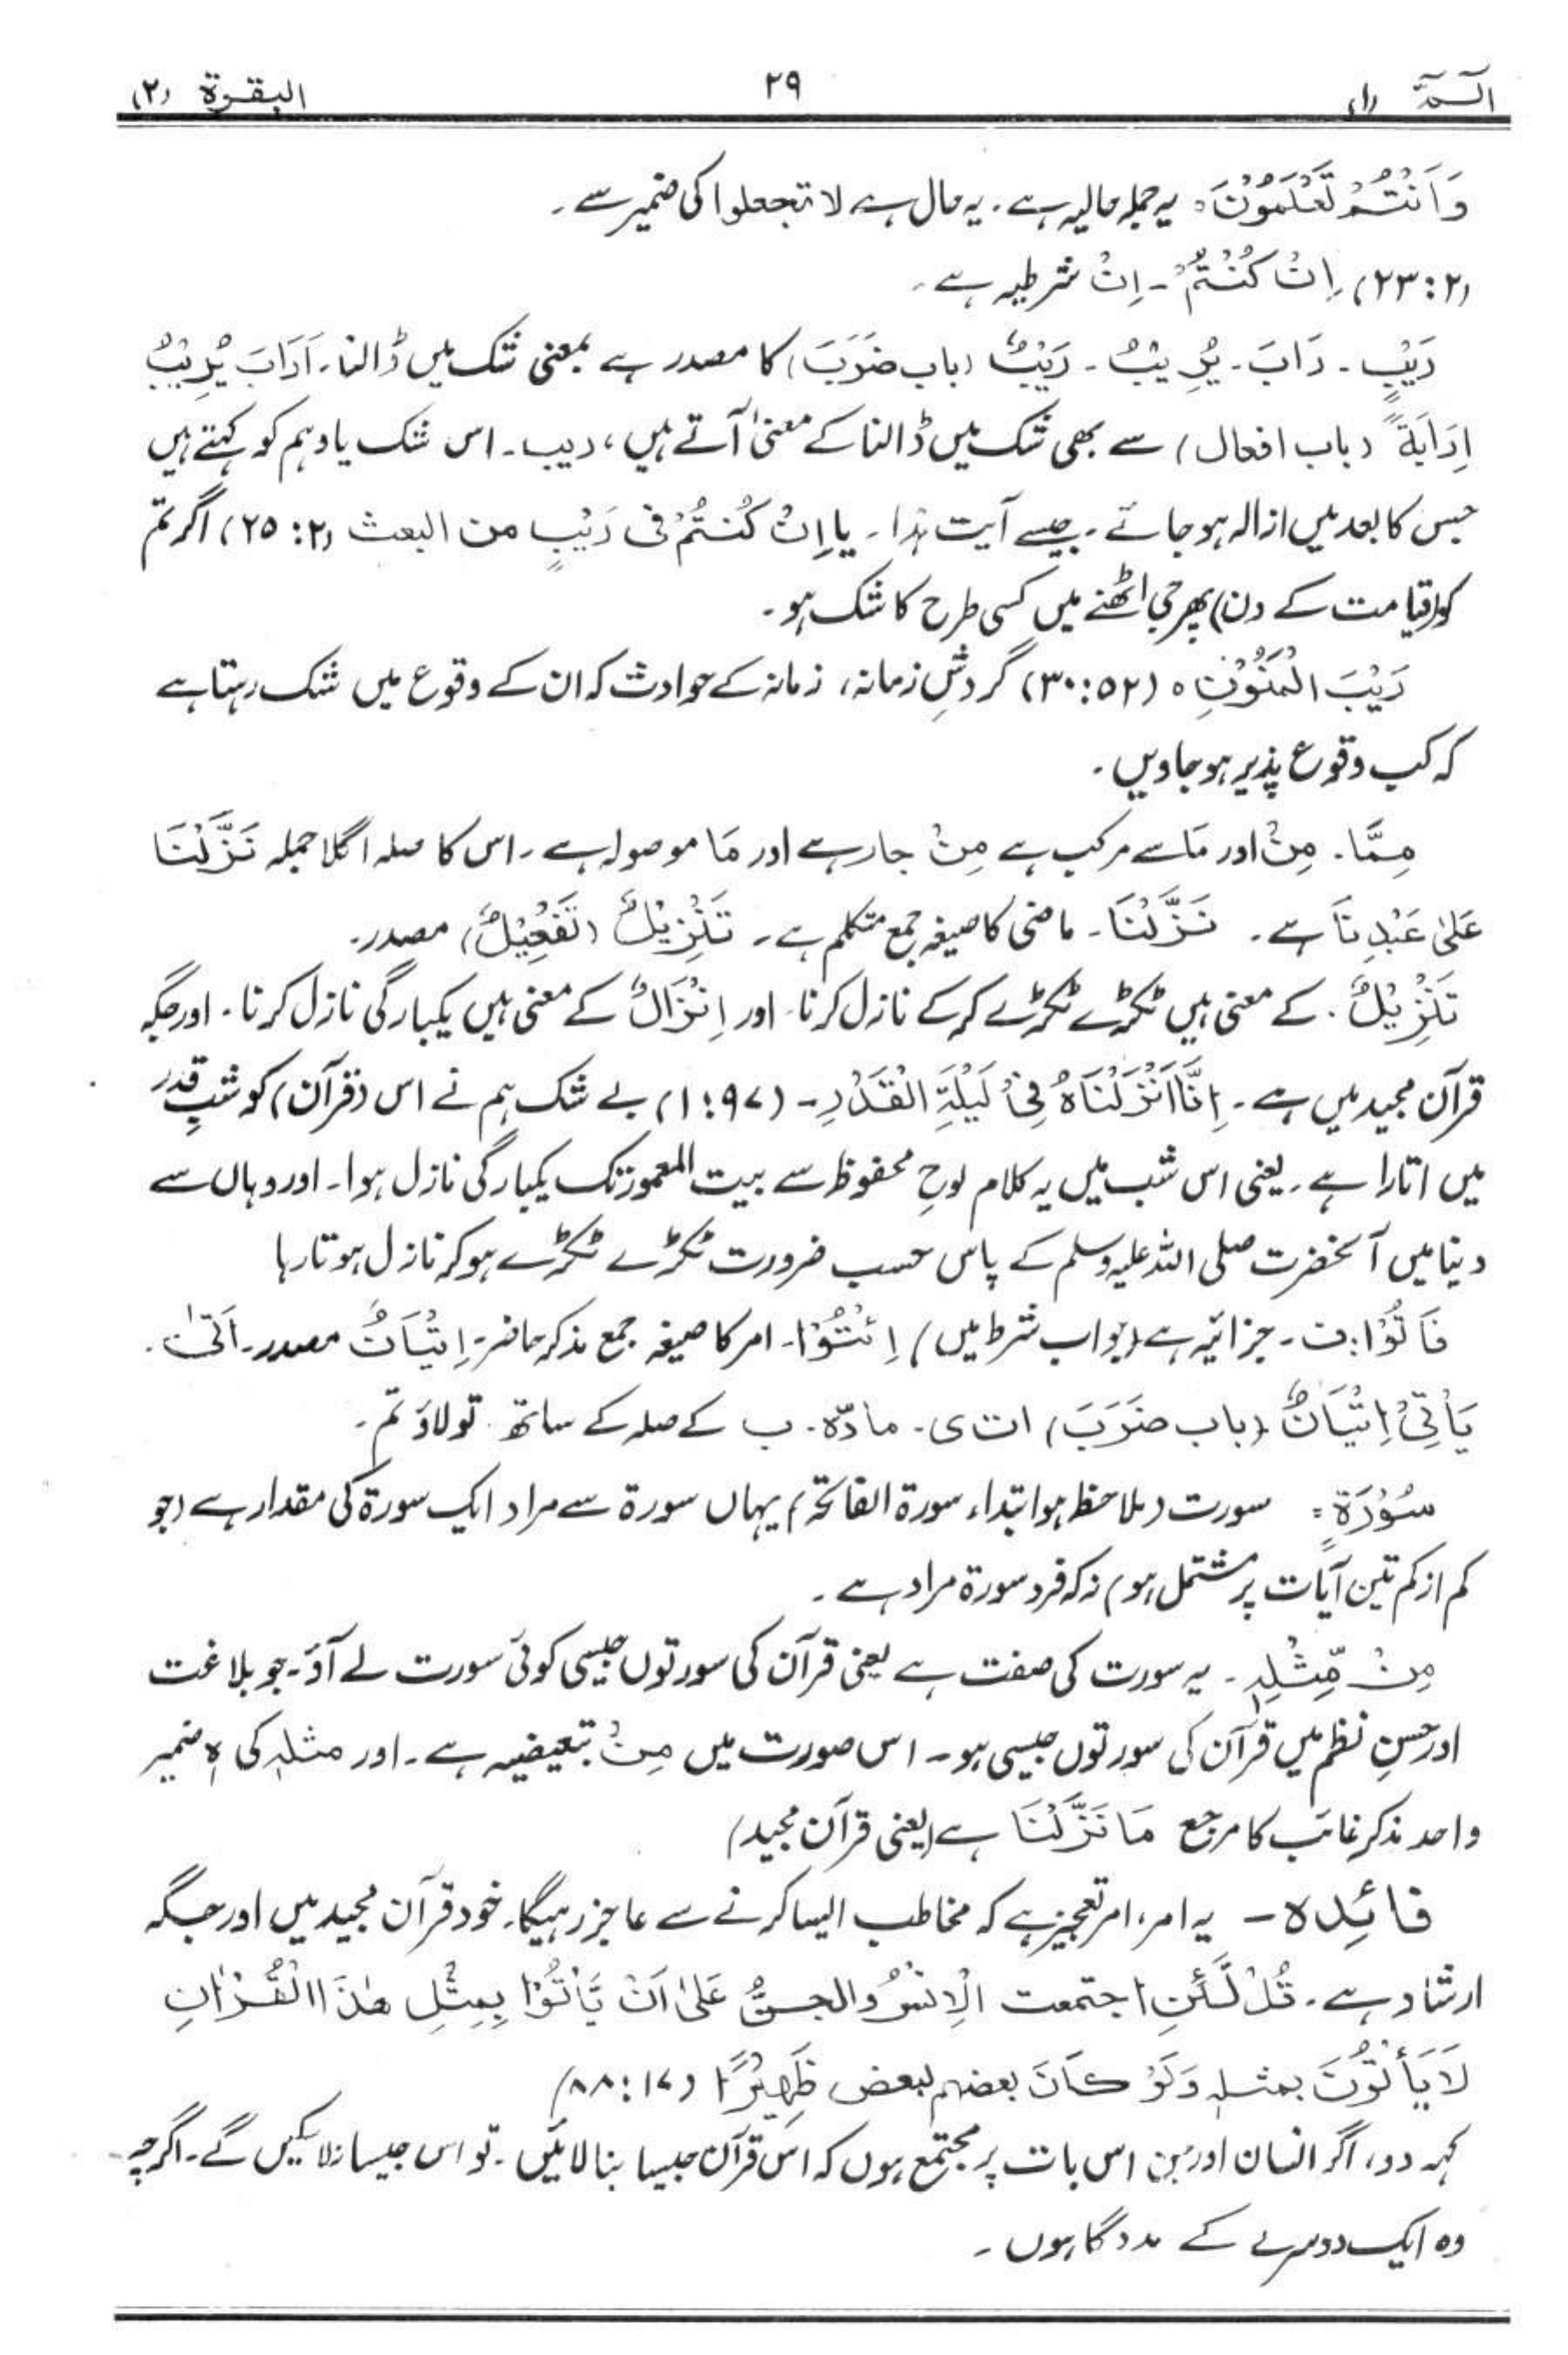 الٓـمّٓ (۱) ۲۹ البقرة (۲)
وَاَنْتُمْ تَعْلَمُوْنَ۔ یہ جملہ حالیہ ہے۔ یہ حال ہے لا تجعلوا کی ضمیر سے۔
(۲۳:۲) اِنْ كُنْتُمْ۔ اِنْ شرطیہ ہے۔
رَيْبٍ۔ رَابَ۔ يُرِيْبُ۔ رَيْبٌ (باب ضَرَبَ) کا مصدر ہے بمعنی شک میں ڈالنا۔ اَرَابَ يُرِيْبُ
اِرَابَةً (باب افعال) سے بھی شک میں ڈالنا کے معنیٰ آتے ہیں، ریب۔ اس شک یا وہم کو کہتے ہیں
جس کا بعد میں ازالہ ہو جائے۔ جیسے آیت ہذا۔ یا اِنْ كُنْتُمْ فی رَيْبٍ من البعث (۲۵:۲) اگر تم
کو (قیامت کے دن) پھر جی اٹھنے میں کسی طرح کا شک ہو۔
رَيْبَ الْمَنُوْنِ ہ (۳۰:۵۲) گردشِ زمانہ، زمانہ کے حوادث کہ ان کے وقوع میں شک رہتا ہے
کہ کب وقوع پذیر ہو جاویں۔
مِمَّا۔ مِنْ اور مَا سے مرکب ہے مِنْ جار ہے اور مَا موصولہ ہے۔ اس کا صلہ اگلا جملہ نَزَّلْنَا
عَلٰى عَبْدِنَا ہے۔ نَزَّلْنَا۔ ماضی کا صیغہ جمع متکلم ہے۔ تَنْزِيْلٌ (تَفْعِيْلٌ) مصدر۔
تَنْزِيْلٌ۔ کے معنی ہیں ٹکڑے ٹکڑے کرکے نازل کرنا۔ اور اِنْزَالٌ کے معنی ہیں یکبارگی نازل کرنا۔ اور جگہ
قرآن مجید میں ہے۔ اِنَّا اَنْزَلْنَاهُ فِيْ لَيْلَةِ الْقَدْرِ۔ (۱:۹۷) بے شک ہم نے اس (قرآن) کو شبِ قدر
میں اتارا ہے۔ یعنی اس شب میں یہ کلام لوحِ محفوظ سے بیت المعمور تک یکبارگی نازل ہوا۔ اور وہاں سے
دنیا میں آنحضرت صلی اللہ علیہ وسلم کے پاس حسب ضرورت ٹکڑے ٹکڑے ہو کر نازل ہوتا رہا
فَأْتُوْا: ف۔ جزائیہ ہے (جواب شرط میں) اِئْتُوْا۔ امر کا صیغہ جمع مذکر حاضر۔ اِتْيَانٌ مصدر۔ اَتٰى۔
يَأْتِىْ اِتْيَانٌ (باب ضَرَبَ) ات ی۔ مادّہ۔ ب کے صلہ کے ساتھ۔ تو لاؤ تم۔
سُوْرَةٍ= سورت (ملاحظہ ہو ابتداء سورۃ الفاتحۃ) یہاں سورۃ سے مراد ایک سورۃ کی مقدار ہے (جو
کم از کم تین آیات پر مشتمل ہو) نہ کہ فرد سورۃ مراد ہے۔
مِنْ مِّثْلِهٖ۔ یہ سورت کی صفت ہے یعنی قرآن کی سورتوں جیسی کوئی سورت لے آؤ۔ جو بلاغت
اور حسنِ نظم میں قرآن کی سورتوں جیسی ہو۔ اس صورت میں مِنْ تبعیضیہ ہے۔ اور مثلہٖ کی ہٖ ضمیر
واحد مذکر غائب کا مرجع مَا نَزَّلْنَا ہے (یعنی قرآن مجید)
فائِدہ۔ یہ امر، امر تعجیز ہے کہ مخاطب ایسا کرنے سے عاجز رہیگا۔ خود قرآن مجید میں اور جگہ
ارشاد ہے۔ قُلْ لَّئِنِ اجتمعت الْاِنْسُ والجِنُّ عَلٰى اَنْ يَّأْتُوْا بِمِثْلِ هٰذَا الْقُرْاٰنِ
لَا يَأْتُوْنَ بمثلہٖ وَلَوْ كَانَ بعضهم لبعض ظَهِيْرًا (۸۸:۱۷)
کہہ دو، اگر انسان اور جن اس بات پر مجتمع ہوں کہ اس قرآن جیسا بنا لائیں۔ تو اس جیسا نہ لا سکیں گے۔ اگرچہ
وہ ایک دوسرے کے مددگار ہوں۔